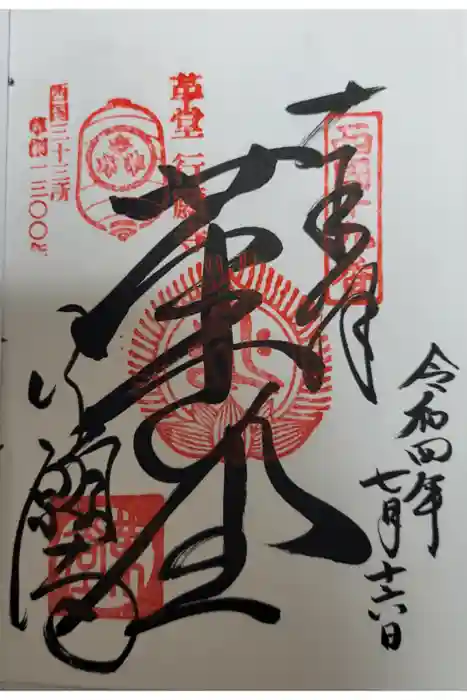 奉拝
西國十九番
令和四年
七月十六日
革堂
革堂 行願寺
西国三十三所
草創一三〇〇年
行願寺